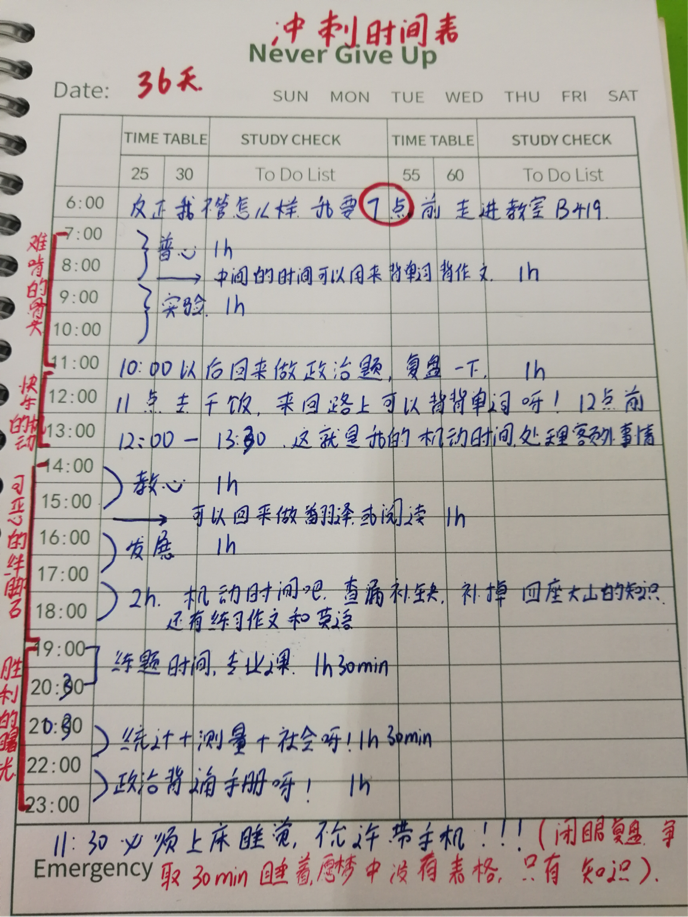 冲刺时间表
Never Give Up
Date: 36天
SUN MON TUE WED THU FRI SAT
TIME TABLE STUDY CHECK TIME TABLE STUDY CHECK
25 30 To Do List 55 60 To Do List
6:00 反正我不管怎么样 我要7点前走进教室B419.
难啃的骨头
7:00 普心 1h
8:00 中间的时间可以用来背单词背作文. 1h
9:00 实验. 1h
10:00
11:00 10:00以后回来做政治题,复盘一下. 1h
快乐的机动
12:00 11点去干饭,来回路上可以背背单词呀!12点前
13:00 12:00-13:30.这就是我的机动时间,处理额外事情
可恶的绊脚石
14:00 教心 1h
15:00 可以回来做翻译或阅读 1h
16:00 发展 1h
17:00
18:00 2h. 机动时间吧.查漏补缺,补掉四座大山的知识.
还有练习作文和英语
胜利的曙光
19:00 练题时间,专业课. 1h30min
20:30
20:30 统计+测量+社会呀!1h30min
22:00 政治背诵手册呀! 1h
23:00
11:30必须上床睡觉,不允许带手机!!!(闭眼复盘 争
Emergency 取30min睡着,梦中没有表格,只有知识).